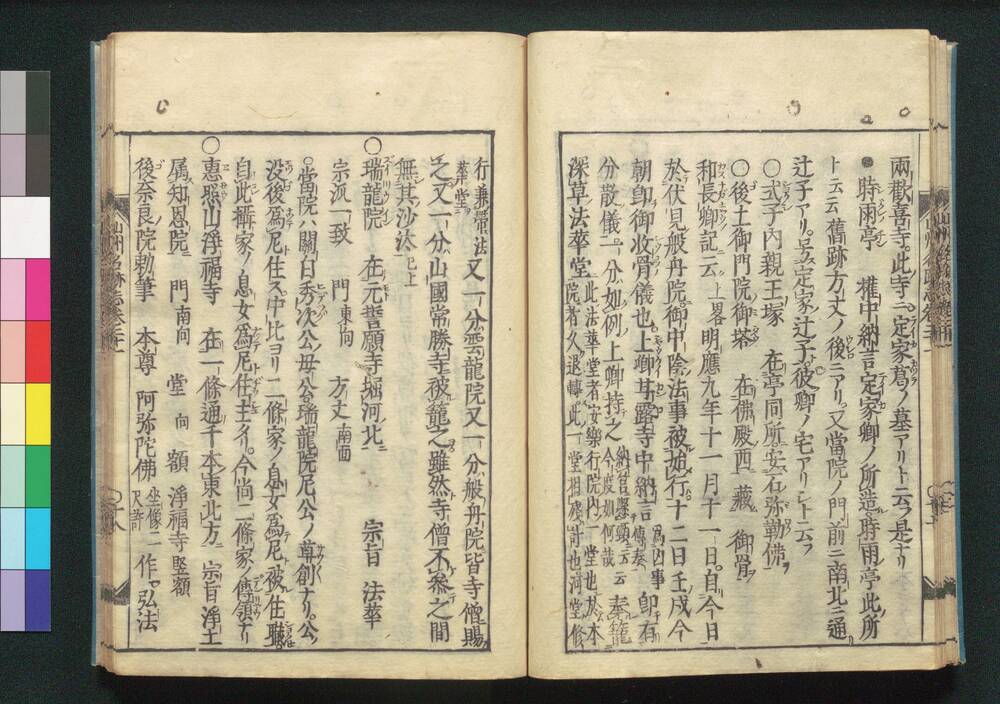 兩歡喜寺。此寺ニ定家葛ノ墓アリト云フ是ナリ
●時雨亭 權中納言定家卿ノ所造。時雨亭此所
ト云云 舊跡方丈ノ後ニアリ。又當院ノ門前ニ南北ニ通
辻子アリ。号ス定家辻子ト彼卿ノ宅アリシト云フ
〇式子内親王塚 在亭同所。安石弥勒佛ヲ
〇後土御門院御塔 在佛殿西ニ藏ム御骨ヲ
和長卿記ニ云上畧明應九年十一月十一日。自今日
於伏見般舟院。御中陰法事被始行十二日壬戌今
朝卽御收骨儀也。上卿甘露寺中納言傳奏爲凶事卽有
分散儀。一分如例ノ上卿持之今度如何哉納言懸頸云云奉籠
深草法華堂此法華堂者安樂行院內ノ一堂也於本院者久退轉。此一堂相殘許也河堂修
行兼帶法華堂又一分雲龍院又一分般舟院皆寺僧賜
之又一分山國常勝寺被籠之雖然寺僧不參之間
無其沙汰已上
〇瑞龍院 在元誓願寺堀河北ニ 宗旨 法華
宗派一致 門東向 方丈南面
〇當院ハ關白秀次公母公瑞龍院尼公ノ草創ナリ。公ノ
没後爲尼住ス中比ヨリ二條家ノ息女爲尼被住職
自此攝家ノ息女爲尼住主タリ。今尚二條家ノ傳領ナリ
〇惠照山淨福寺 在一條通千本東北方ニ 宗旨淨土
属知恩院ニ 門南向 堂向 額 淨福寺竪額
後奈良院勅筆 本尊 阿弥陀佛坐像二尺許 作弘法